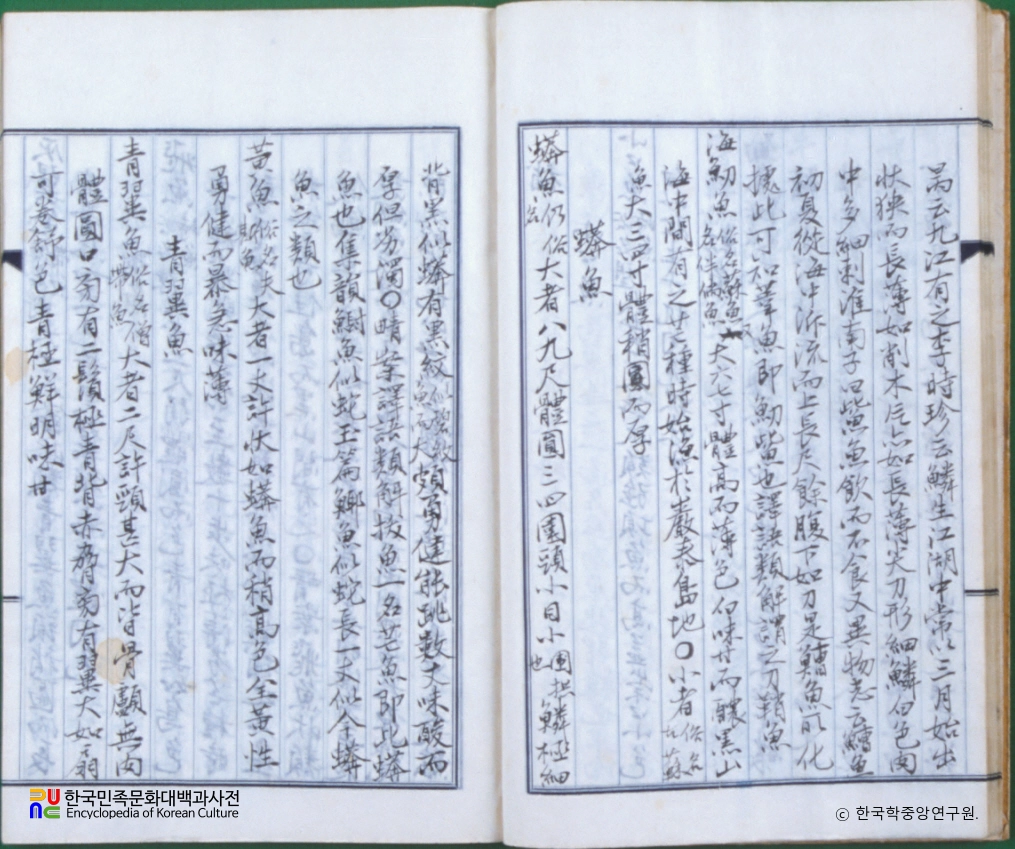 昺云九江有之李時珍云鱭生江湖中常以三月始出
狀狹而長薄如削木片亦如長薄尖刀形細鱗白色肉
中多細刺淮南子曰鮆魚飮而不食又異物志云鱭魚
初夏從海中泝流而上長尺餘腹下如刀是鰽魚所化
據此可知葦魚即魛鮆也譯語類解謂之刀鞘魚
海魛魚俗名蘇魚又名伴倘魚大六七寸體高而薄色白味甘而醲黑山
海中間有之芒種時始漁於巖泰島地○小者俗名古蘇
魚大三四寸體稍圓而厚
蟒魚
蟒魚仍俗名大者八九尺體圓三四圍頭小目小圍拱也鱗極細
背黑似蟒有黑紋魚而大頗勇健能跳數丈味酸而
厚但劣濁○晴案譯語類解拔魚一名芒魚即此蟒
魚也集韻魚似蛇玉篇魚似蛇長一丈似今蟒
魚之類也
黃魚俗名夫時魚大者一丈許狀如蟒魚而稍高色全黃性
勇健而暴急味薄
青翼魚
青翼魚俗名僧帶魚大者二尺許頸甚大而皆骨顱無肉
體圓口旁有二鬚極青背赤脅旁有翼大如扇
可卷舒色青極鮮明味甘
한국민족문화대백과사전
Encyclopedia of Korean Culture
© 한국학중앙연구원.